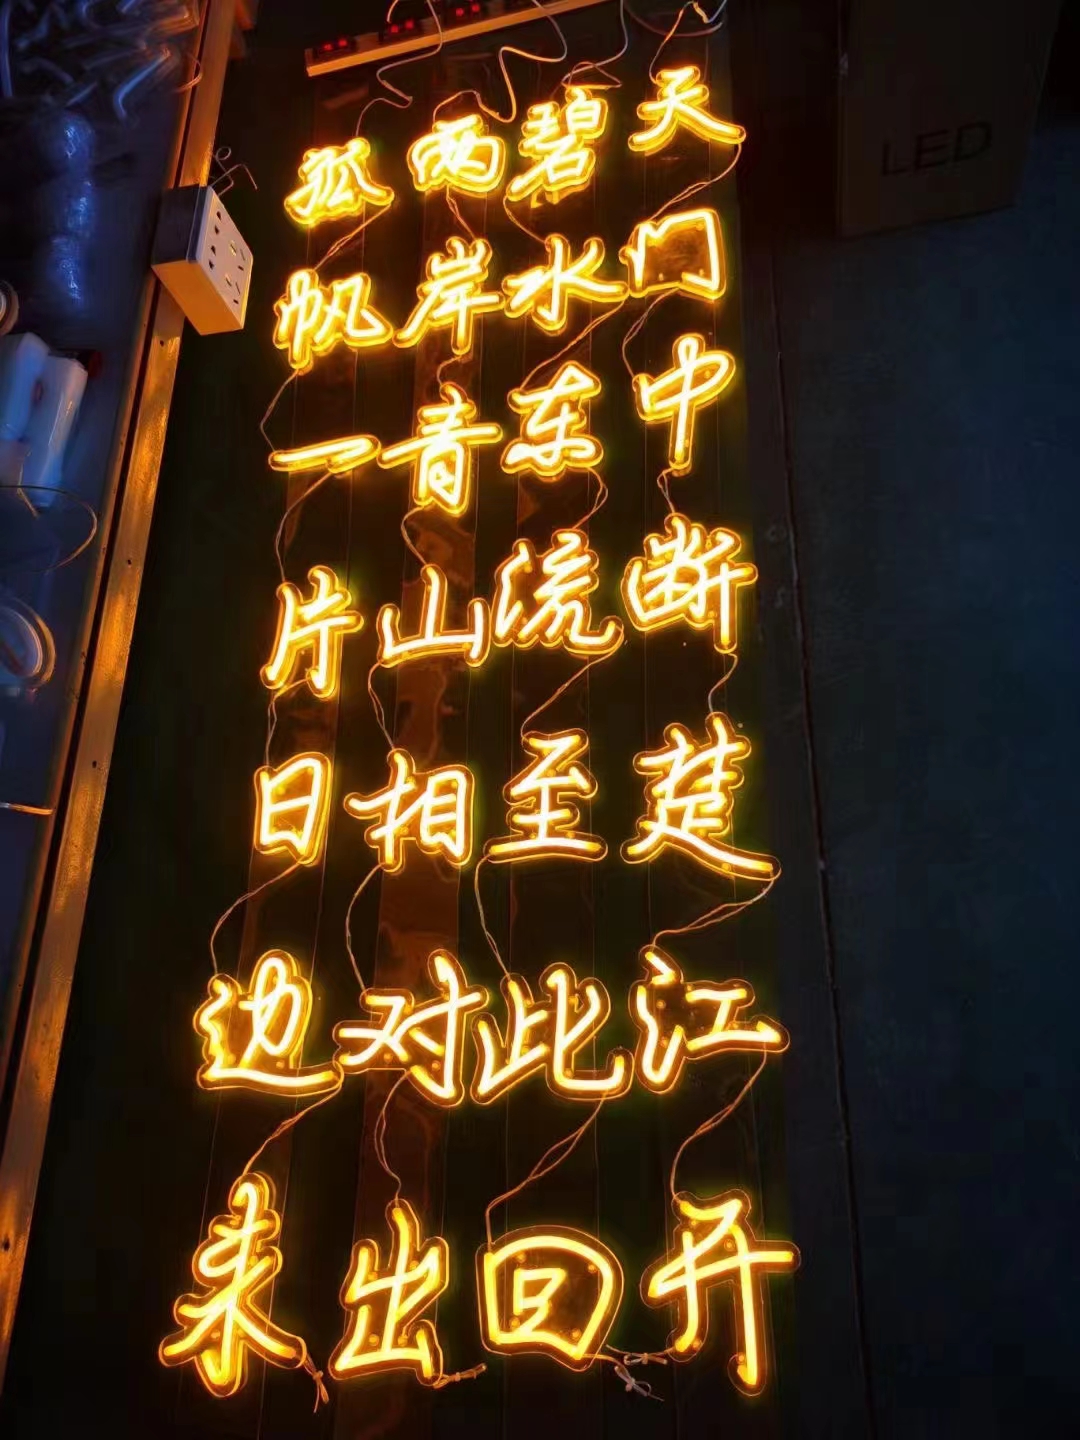 天门中断楚江开
碧水东流至此回
两岸青山相对出
孤帆一片日边来
LED